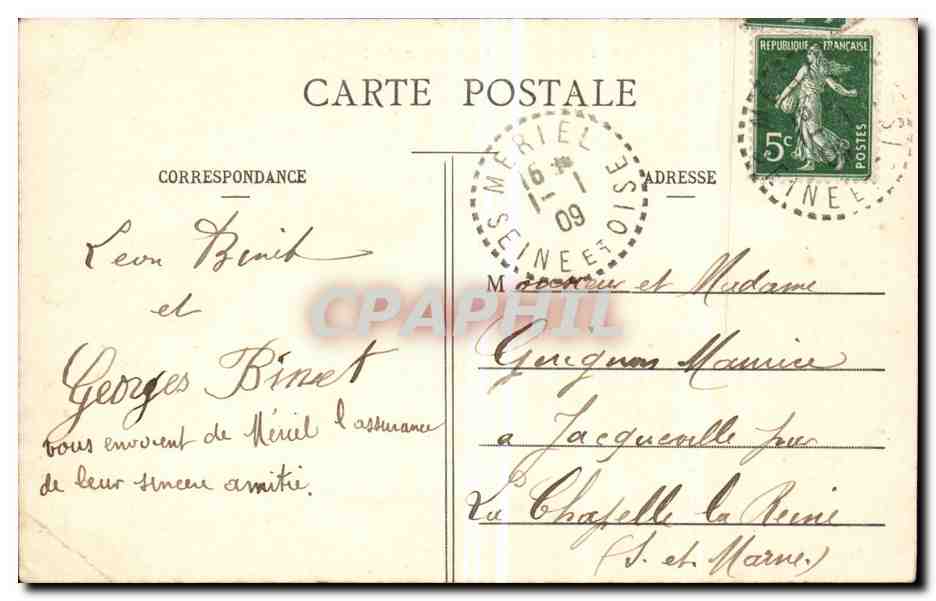 CARTE POSTALE
CORRESPONDANCE
Leon Binet
et
Georges Binet
vous envoient de Mériel l'assurance
de leur sincere amitié.
ADRESSE
Monsieur et Madame
Maurice
a Jacqueville par
La Chapelle la Reine
(S. et Marne.)
REPUBLIQUE FRANÇAISE
5c
POSTES
MERIEL
16
1-1
09
SEINE ET OISE
SEINE E
CPAPHIL